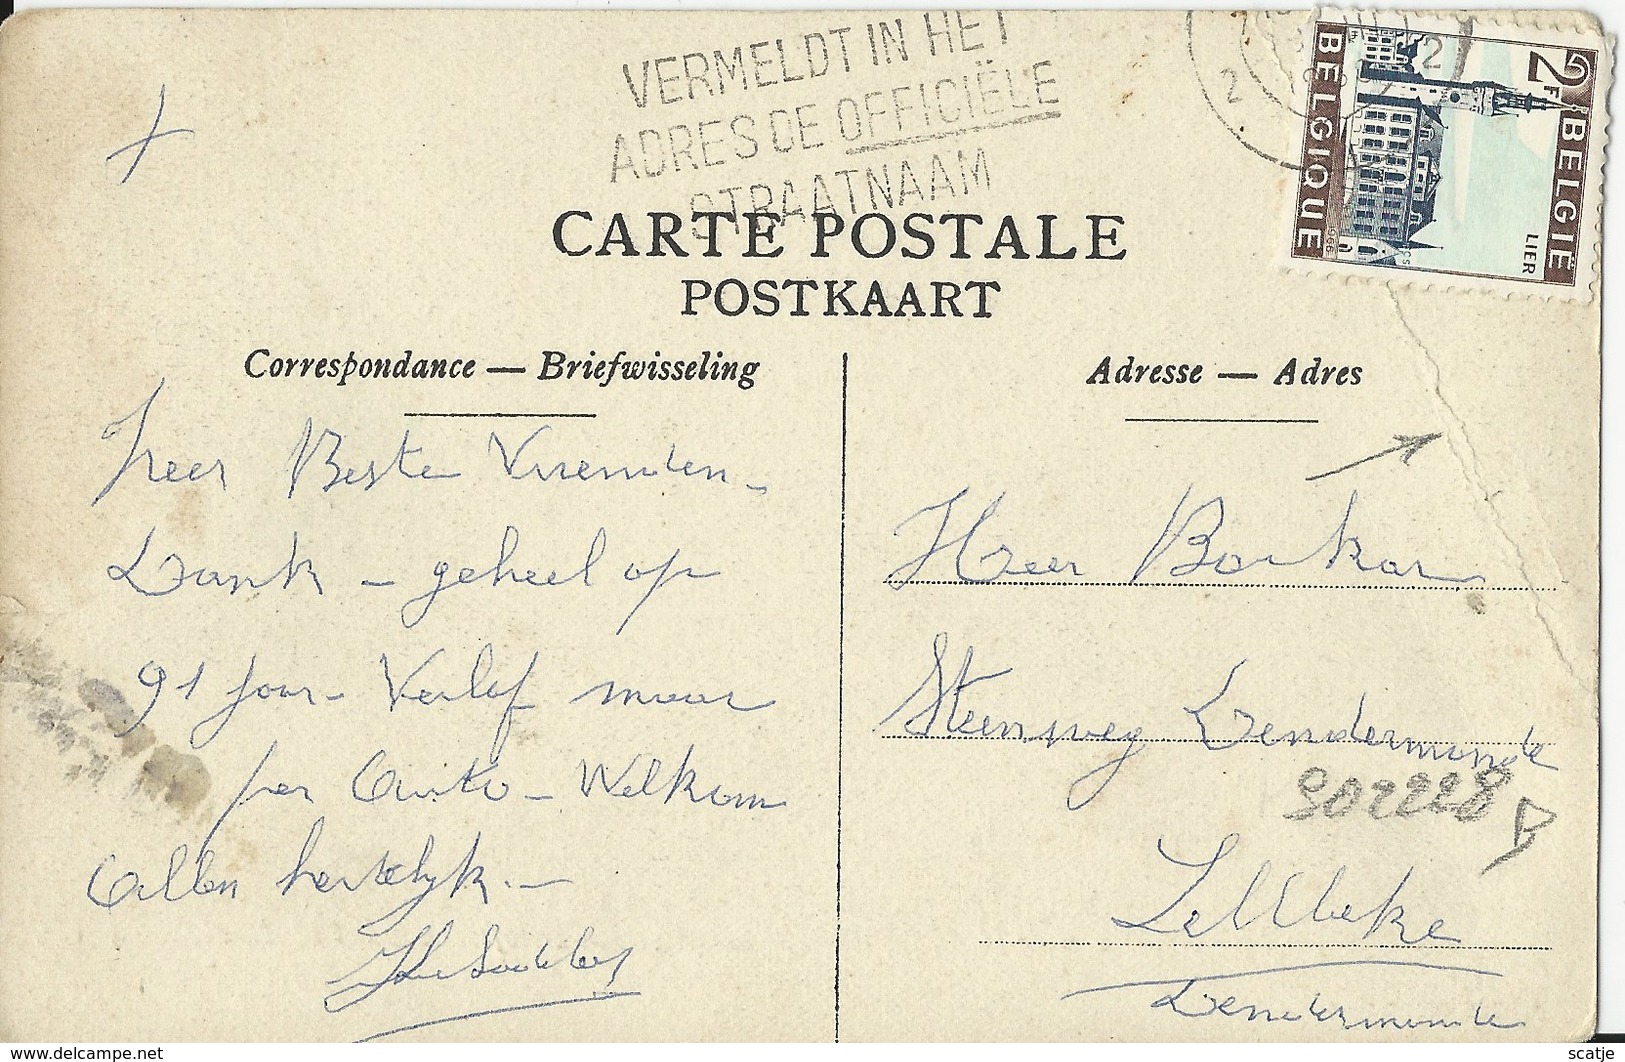 VERMELDT IN HET
ADRES DE OFFICIËLE
STRAATNAAM
2
2
BELGIQUE
1966
2F
BELGIË
LIER
CARTE POSTALE
POSTKAART
Correspondance — Briefwisseling
Heer Beste Vrienden -
Dank - geheel op
91 jaar - Verlof maar
per Auto - Welkom
Allen hertelijk. -
Adresse — Adres
Heer
Steenweg Dendermonde
302228
Lebbeke
Dendermonde
delcampe.net
scatje